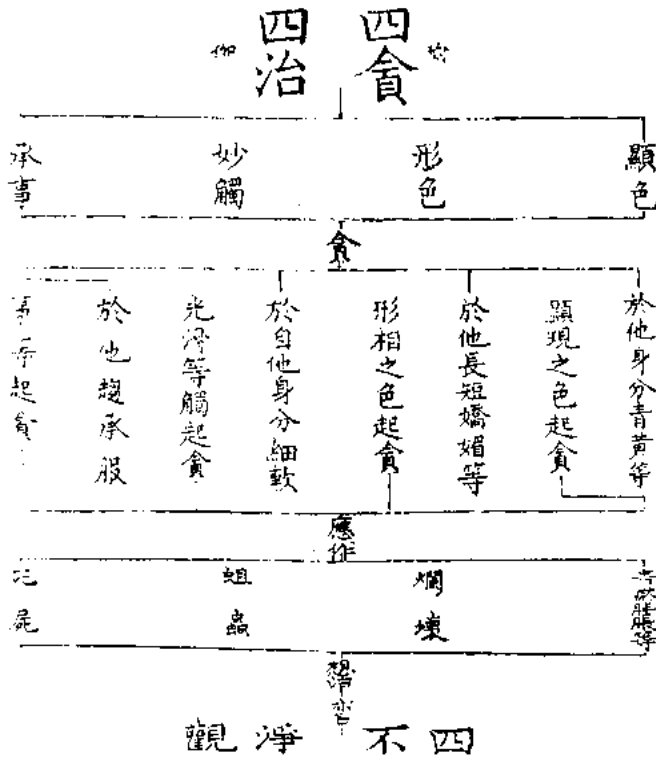 四貪
四治
伽
顯色
形色
妙觸
承事
貪
於他身分青黃等
顯現之色起貪
於他長短嬌媚等
形相之色起貪
於自他身分細軟
光滑等觸起貪
於他趨承服
事等起貪
應作
爛壞
蛆蟲
屍
四不淨觀